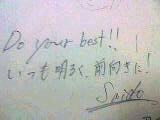 Do your best!!
いつも明るく、前向きに!